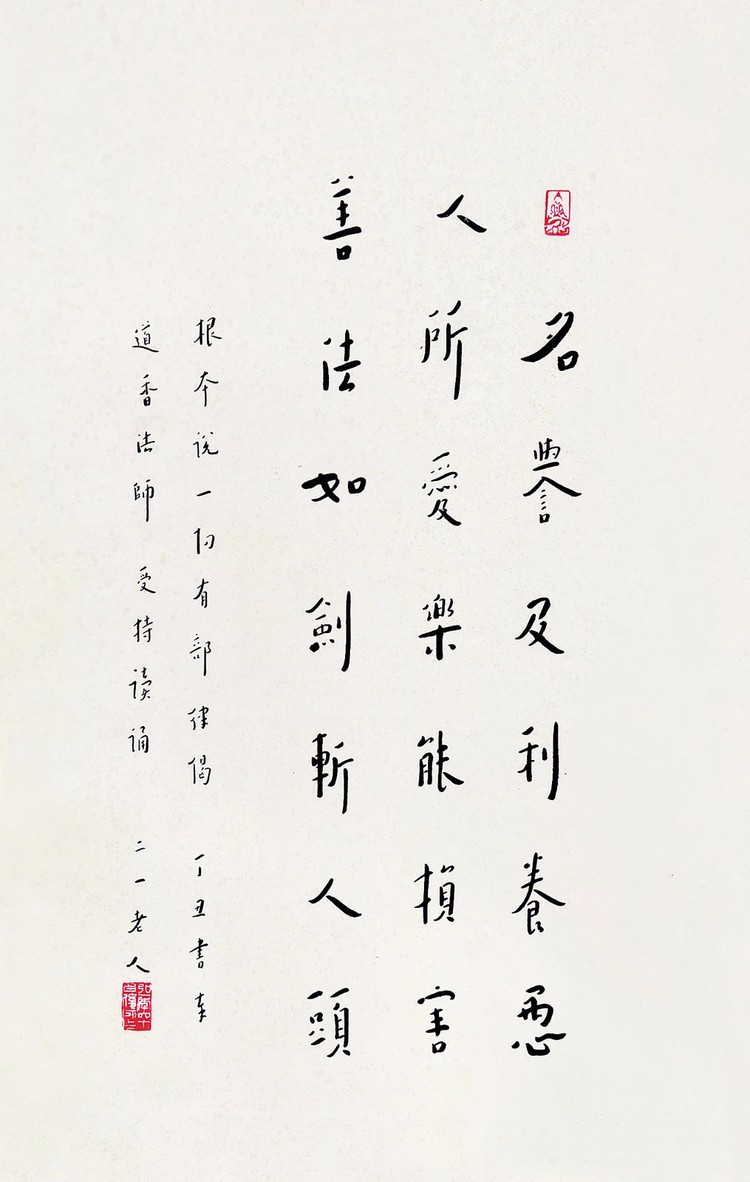 名譽及利養惡
人所愛樂能損害
善法如劍斬人頭
根本說一切有部律偈 丁丑書奉
道香法師 受持讀誦 二一老人